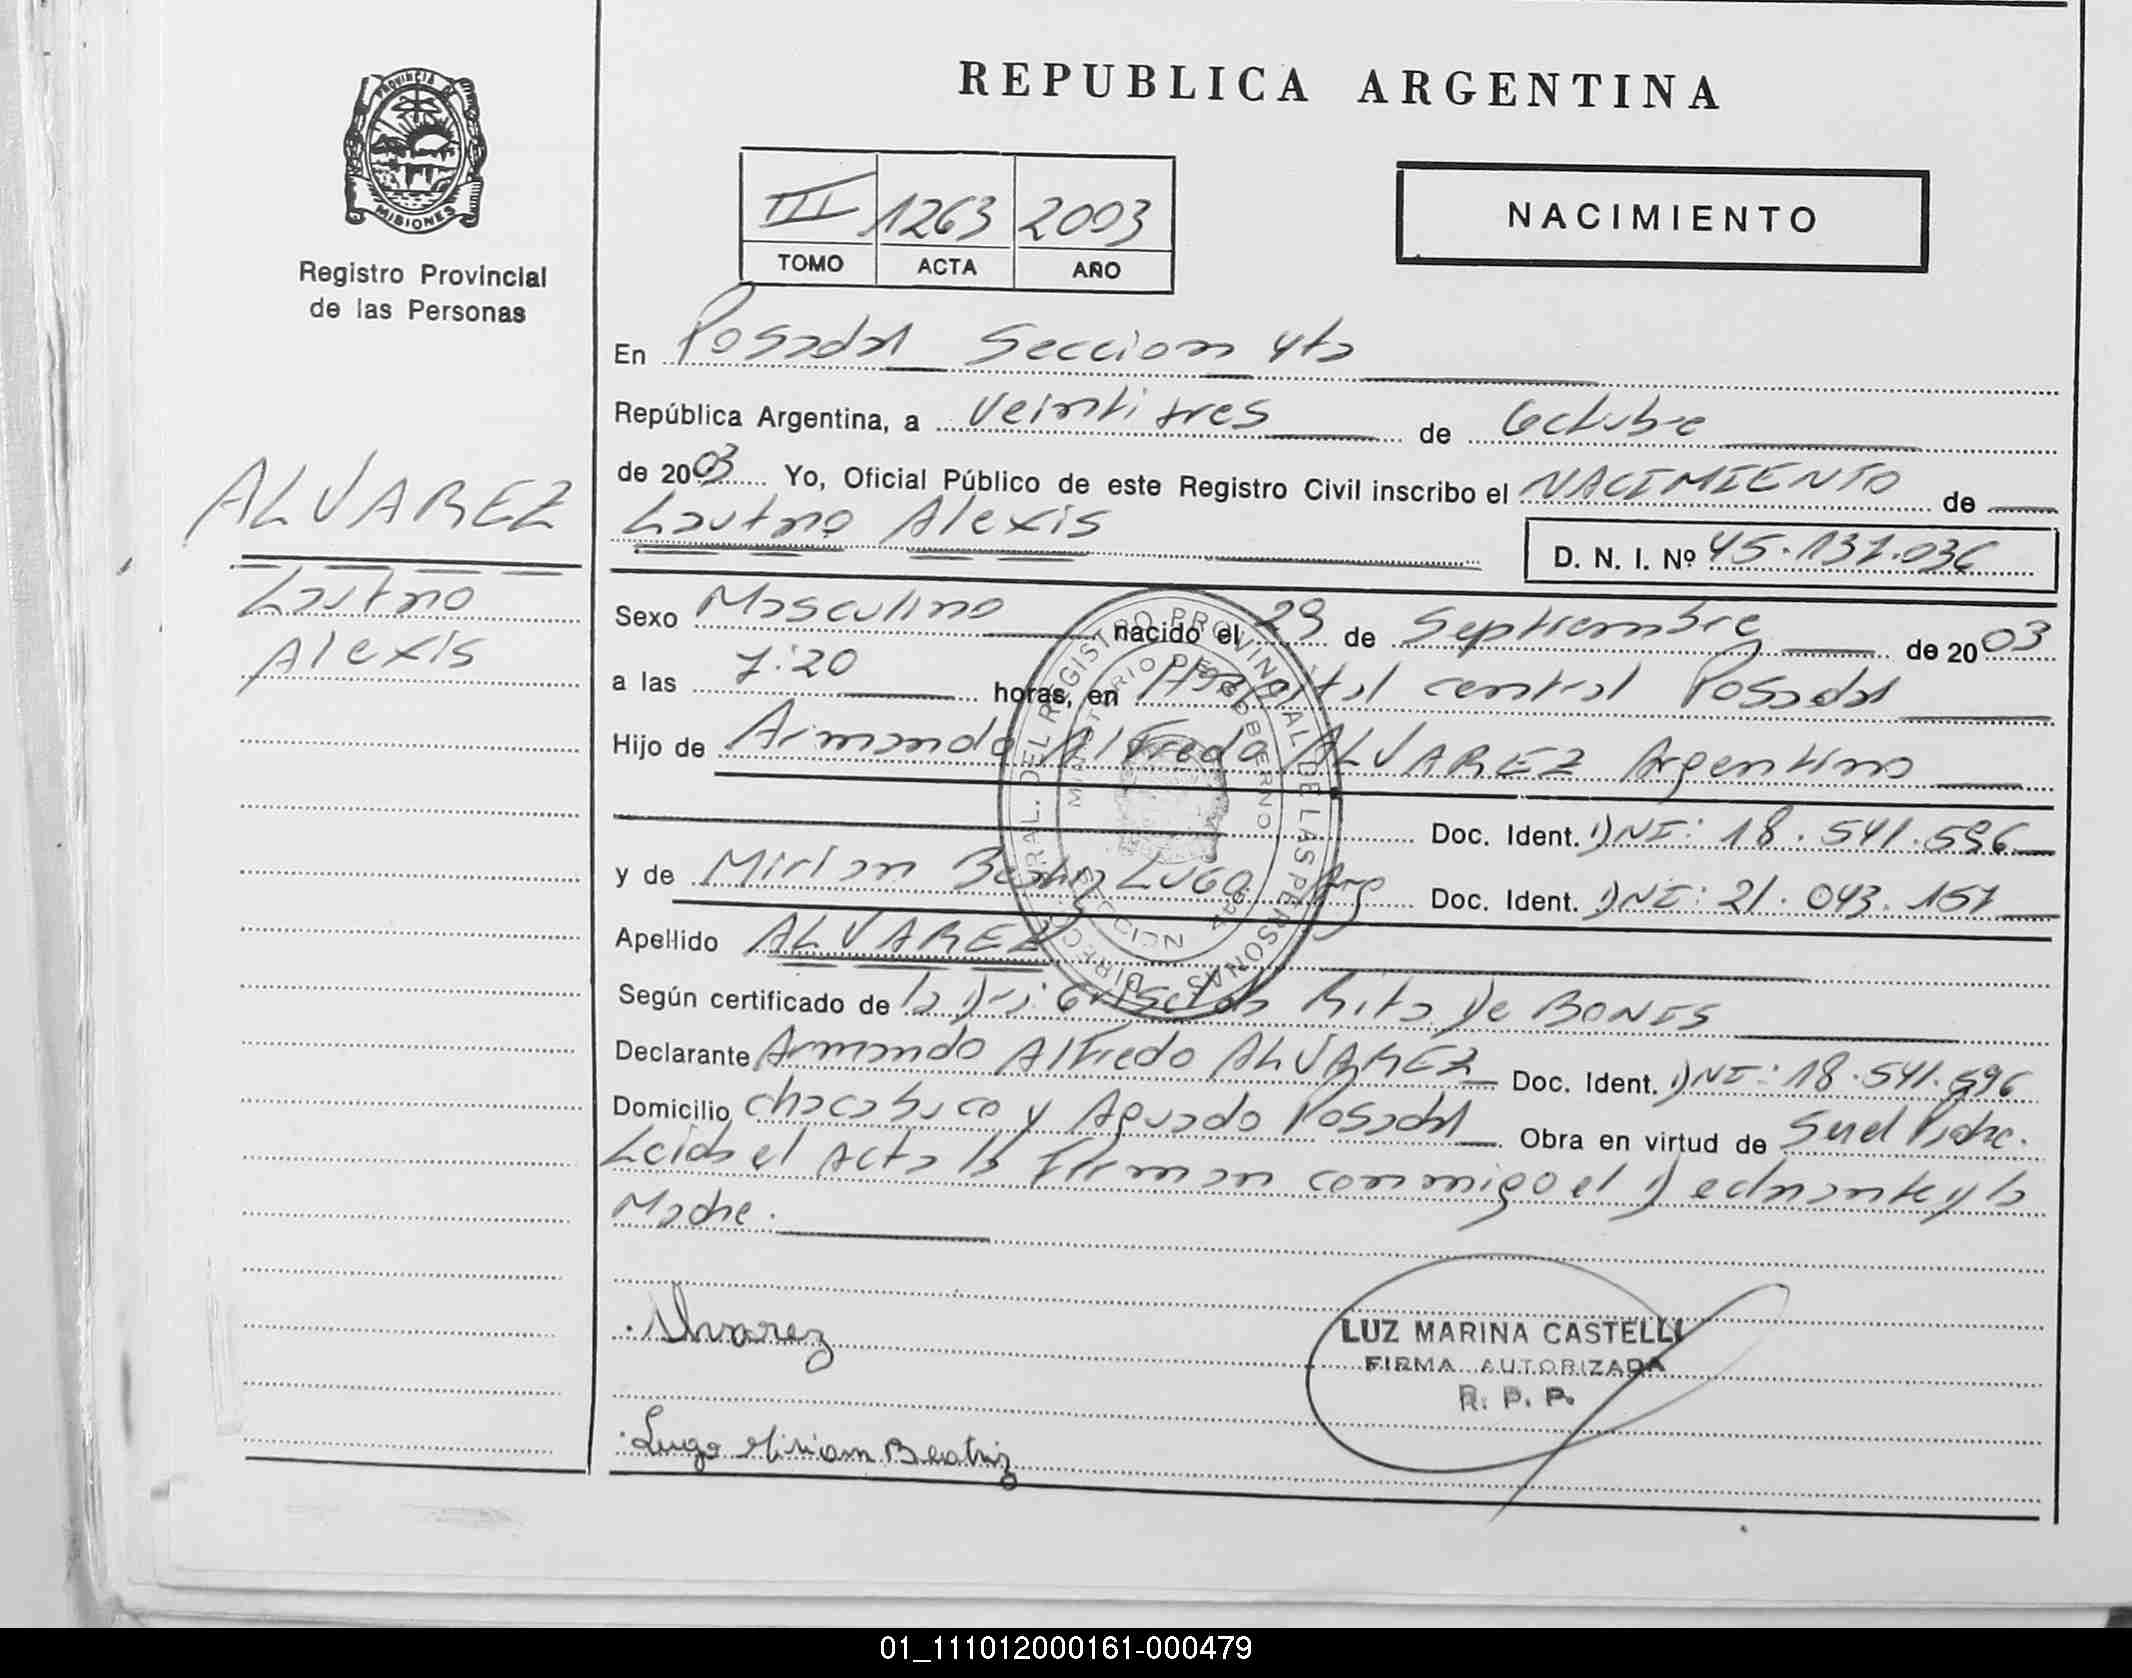 PROVINCIA DE
MISIONES
Registro Provincial
de las Personas
ALVAREZ
Lautaro
Alexis
REPUBLICA ARGENTINA
III 1263 2003
TOMO ACTA AÑO
NACIMIENTO
En Posadas Seccion 4ta
República Argentina, a veintitres de Octubre
de 2003 Yo, Oficial Público de este Registro Civil inscribo el NACIMIENTO de
Lautaro Alexis
D. N. I. Nº 45.137.036
Sexo Masculino nacido el 29 de Septiembre de 2003
a las 7:20 horas, en Hospital central Posadas
Hijo de Armando Alfredo ALVAREZ Argentino
Doc. Ident. DNI: 18.541.596
y de Miriam Beatriz LUGO Arg Doc. Ident. DNI: 21.043.157
Apellido ALVAREZ
Según certificado de la Dra: Griselda Rita De BONIS
Declarante Armando Alfredo ALVAREZ Doc. Ident. DNI: 18.541.596
Domicilio chacabuco y Aguado Posadas Obra en virtud de Ser el Padre.
Leida el Acta la Firman conmigo el Declarante y la
Madre.
Alvarez
LUZ MARINA CASTELLI
FIRMA AUTORIZADA
R. P. P.
Lugo Miriam Beatriz
DIREC. GRAL. DEL REGISTRO PROVINCIAL DE LAS PERSONAS
MINISTERIO DE GOBIERNO
SECCION 4ta
01_111012000161-000479